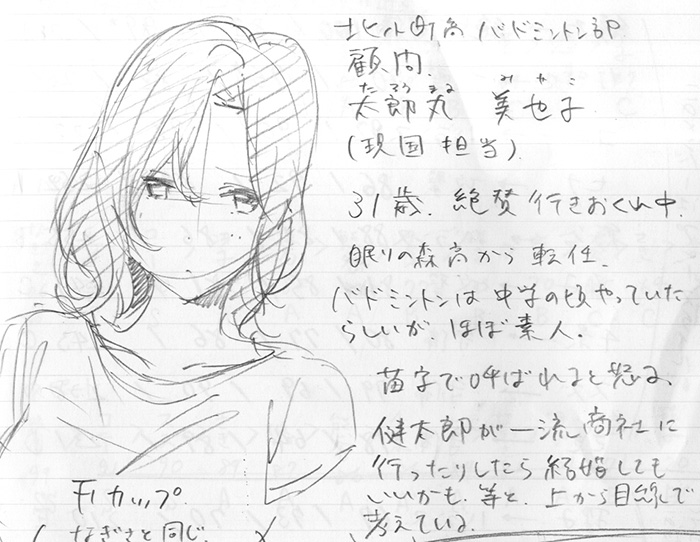 北小町高 バドミントン部
顧問
たろうまる みやこ
太郎丸 美也子
(現国担当)
31歳. 絶賛行きおくれ中.
眠りの森高から転任.
バドミントンは中学の頃やっていた
らしいが、ほぼ素人.
苗字で呼ばれると怒る.
健太郎が一流商社に
行ったりしたら結婚しても
いいかも. 等と. 上から目線で
考えている.
カップ.
なぎさと同じ.